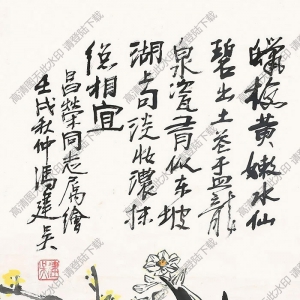 蠟梅黄嫩水仙
碧出土花盂龍
泉瓷 君似東坡
湖上句淡妝濃抹
總相宜
昌榮同志屬繪
壬戌秋仲馮建吳